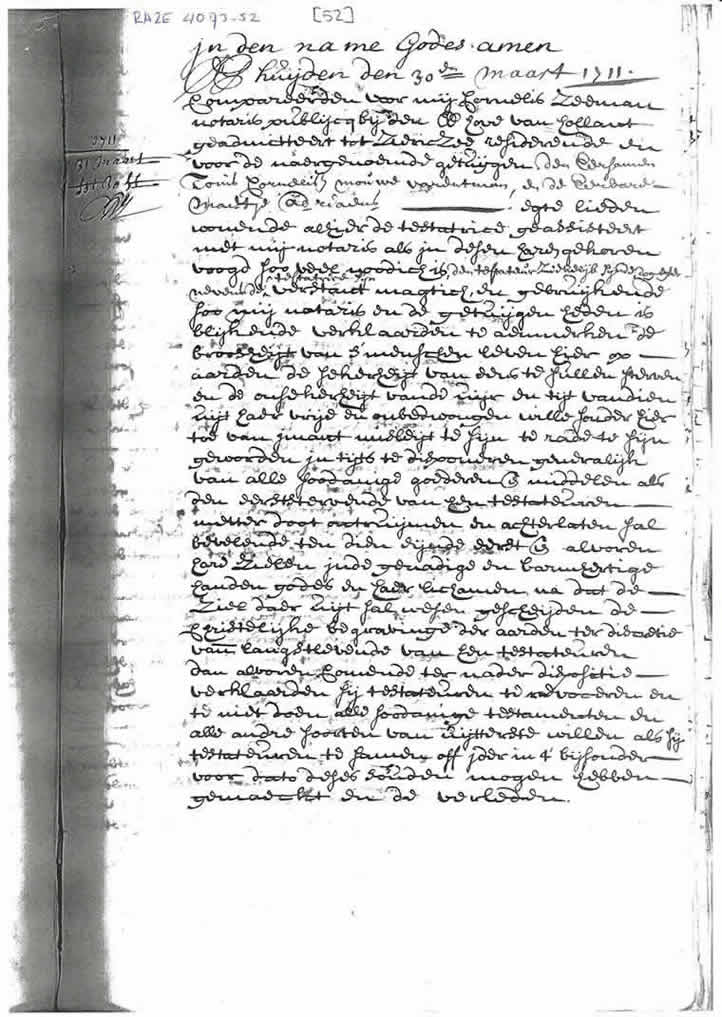 RAZE 4093-52 [52]
jn den name Godes amen
Op huijden den 30en maart 1711.
Compareerden voor mij Cornelis Zeeman
notaris publijcq bij den Hove van Hollant
geadmitteert tot Zierczee residerende en
1711
31 maart
voor de naergenoemde getuijgen, den Eersamen
Tonis Cornelisz mouwe, en de Eerbare
Maetje Adriaens egte lieden
wonende alhier de testatrice geassisteert
met mij notaris als in desen haren gekoren
voogd soo veel noodich is, den testateur Ziekelijk
testatrice
nevens de verstant magtich, en gebruijkende
soo mij notaris en de getuijgen heden is
blijkende verklaarden te aenmerken de
broosheijt van 's menschen leven hier op
aarden de sekerheijt van eens te sullen sterven
en de onsekerheijt vande uijr en tijt van dien
uijt haer vrije en onbedwongen wille sonder hier
toe van jmant misleijt te sijn te rade te sijn
geworden jn tijts te disponeren generalijk
van alle soodanige goederen en middelen als
den eerststervende van hen testateuren
metter doot ontruijmen en achterlaten sal
bevelende ten dien eijnde eerst en alvoren
hare Zielen jnde genadige en barmhertige
handen godes en haer lichamen na dat de
Ziel daer uijt sal wesen gescheijden de
Christelijke begravinge der aarden ter discretie
van langstlevende van hen testateuren
dan alvoren komende ter nader dispositie
verklaarden sij testateuren te revoceren en
te niet doen alle soodanige testamenten en
alle andre soorten van uijtterste willen als sij
testateuren te samen off jder in 't bijsonder
voor dato deses souden mogen hebben
gemaeckt en de verleden.